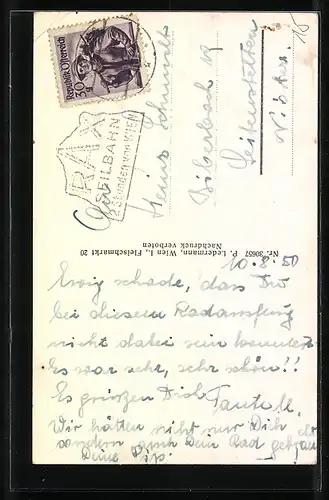 18
Republik Österreich
30 g
RAX
SEILBAHN
2 Stunden von WIEN
Heinz Schmidt
Biberbach 19
Seitenstetten
N. Öster.
Nr. 30657 P. Ledermann, Wien I., Fleischmarkt 20
Nachdruck verboten
10.8.50
Ewig schade, dass Du
bei diesem Radausflug
nicht dabei sein konntest
Es war sehr, sehr schön!!
Es grüßen Dich
Tante M.
Wir hätten nicht nur Dich
sondern auch Dein Rad
Deine